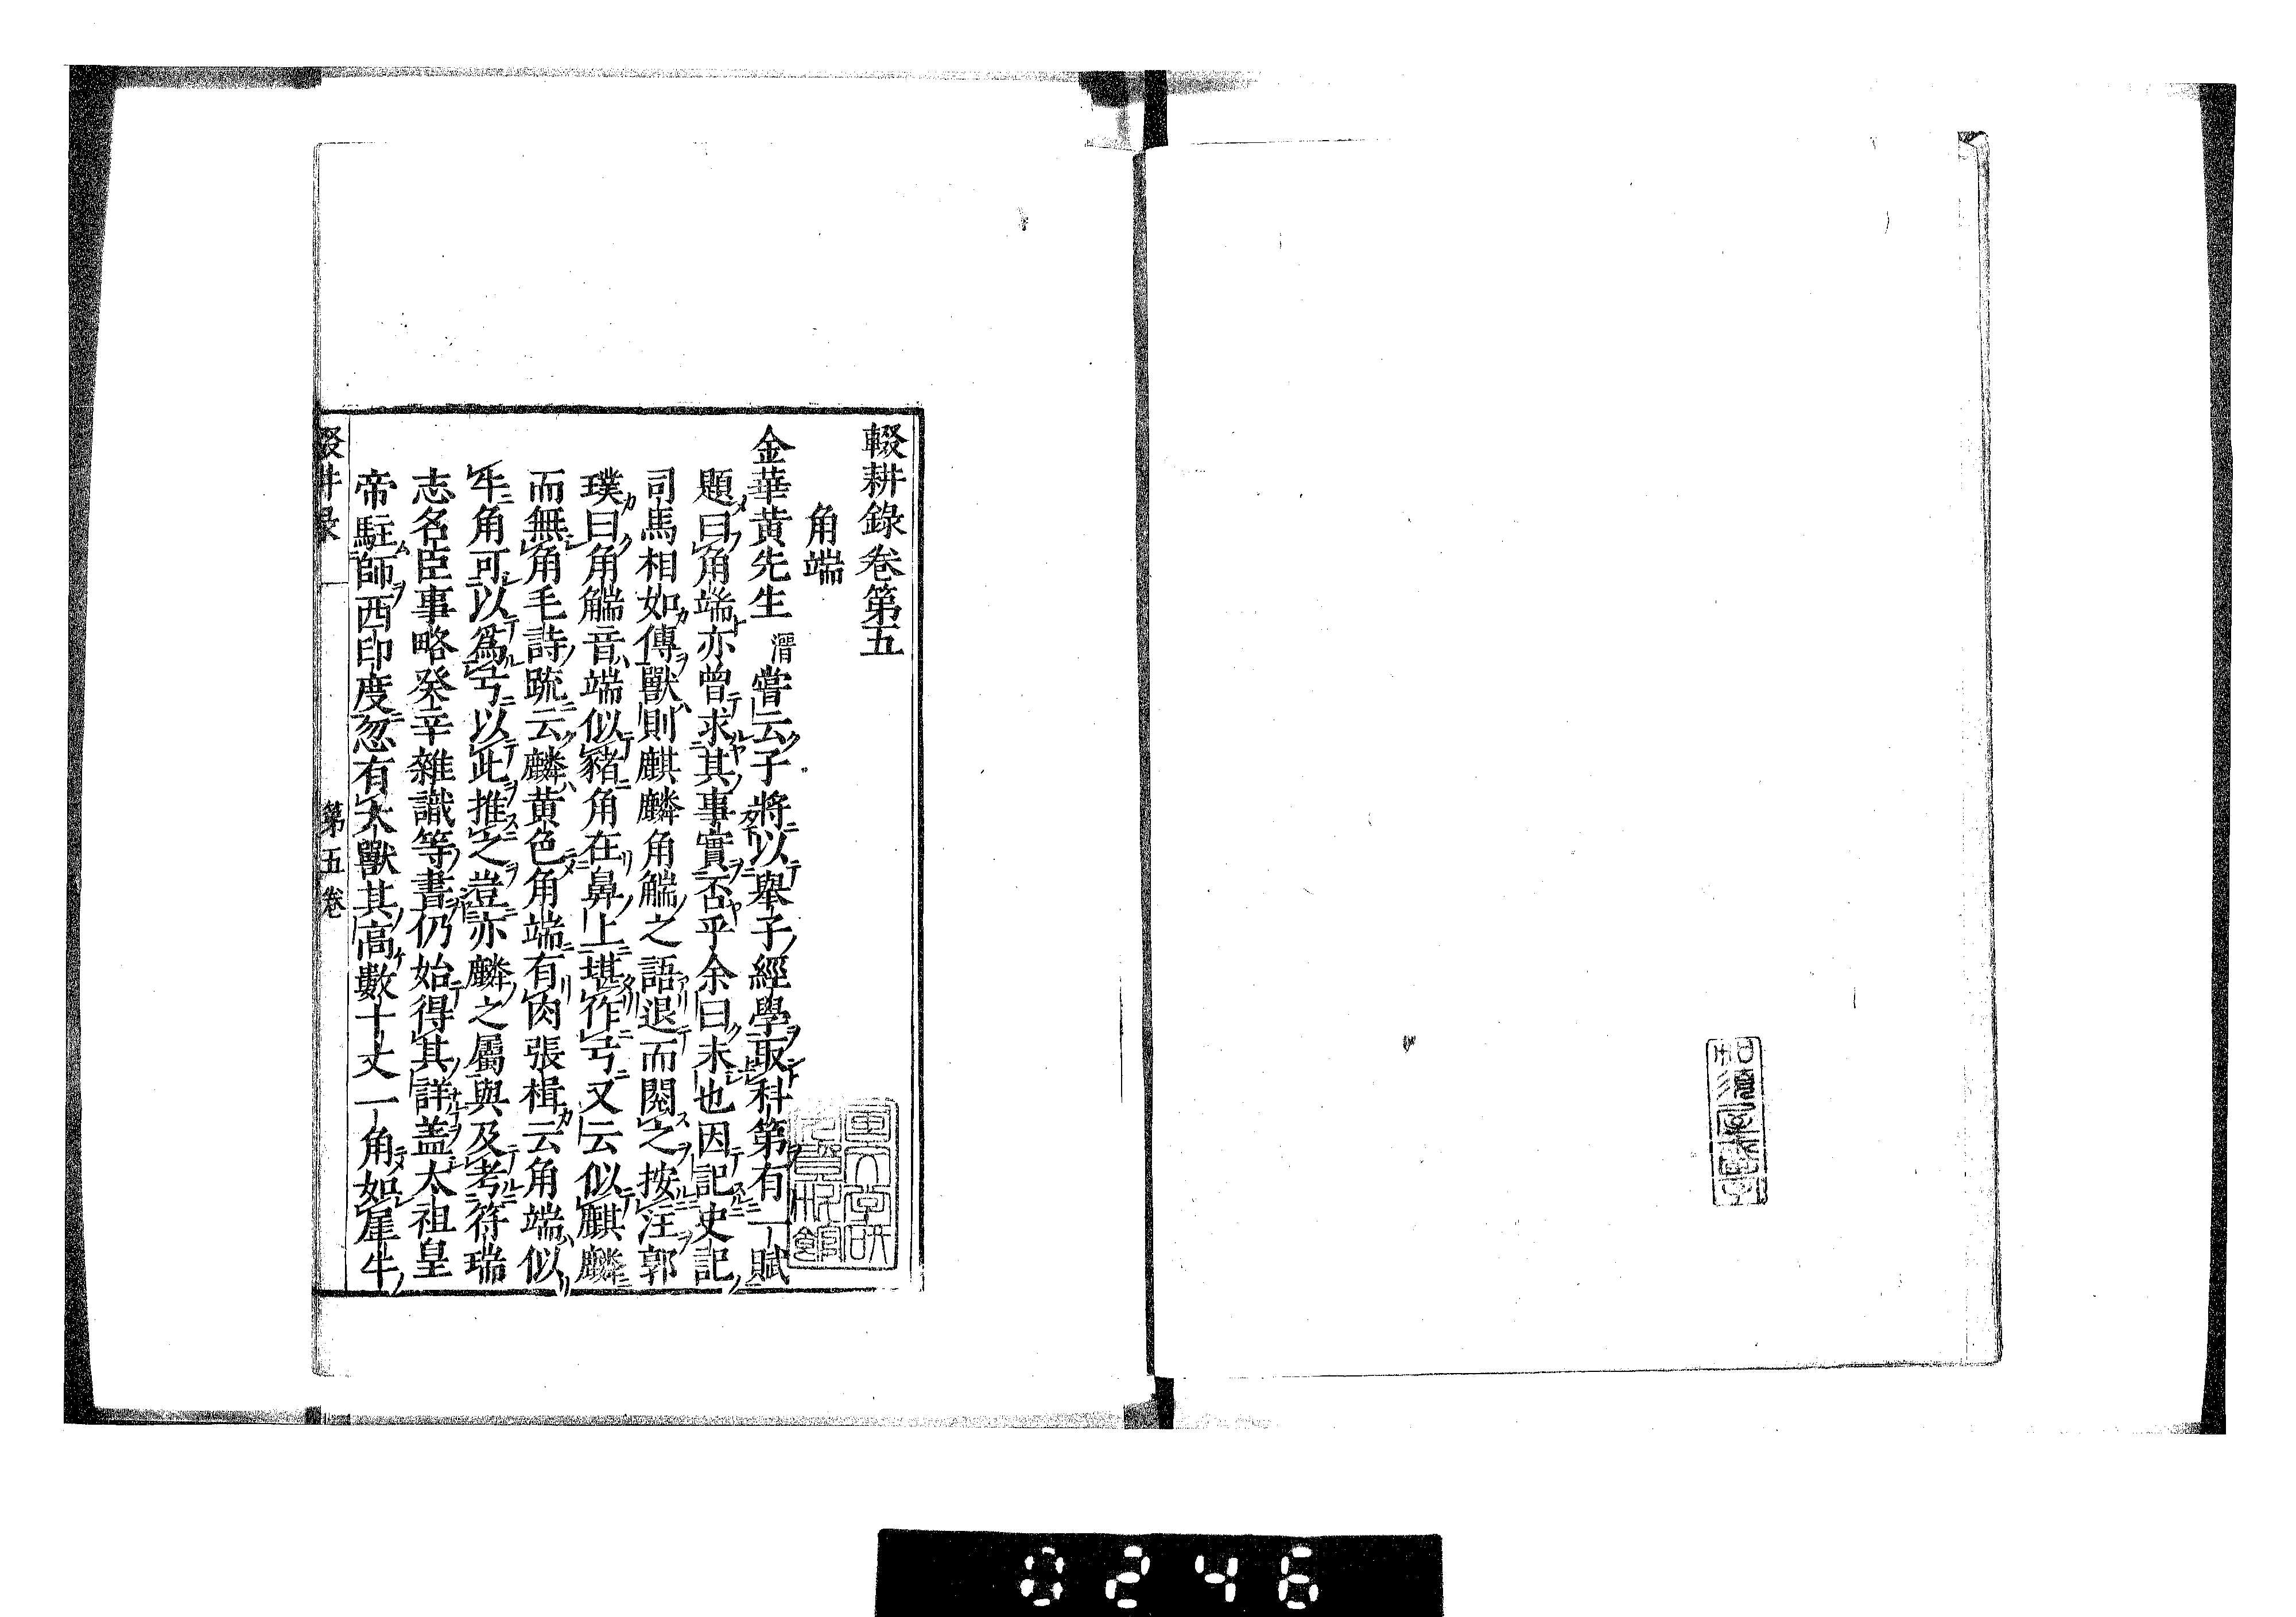 輟耕錄卷第五
角端
金華黃先生溍嘗云子將以舉子經學取科第有一賦
題曰角端亦曾求其事實否乎余曰未也因記史記
司馬相如傳獸則麒麟角䚎之語退而閱之按注郭
璞曰角䚎音端似豬角在鼻上堪作弓又云似麒麟
而無角毛詩疏云麟黃色角端有肉張楫云角端似
牛角可以爲弓以此推之豈亦麟之屬與及考符瑞
志名臣事略癸辛雜識等書仍始得其詳盖太祖皇
帝駐師西印度忽有大獸其高數十丈一角如犀牛
輟耕录
第五卷
0246